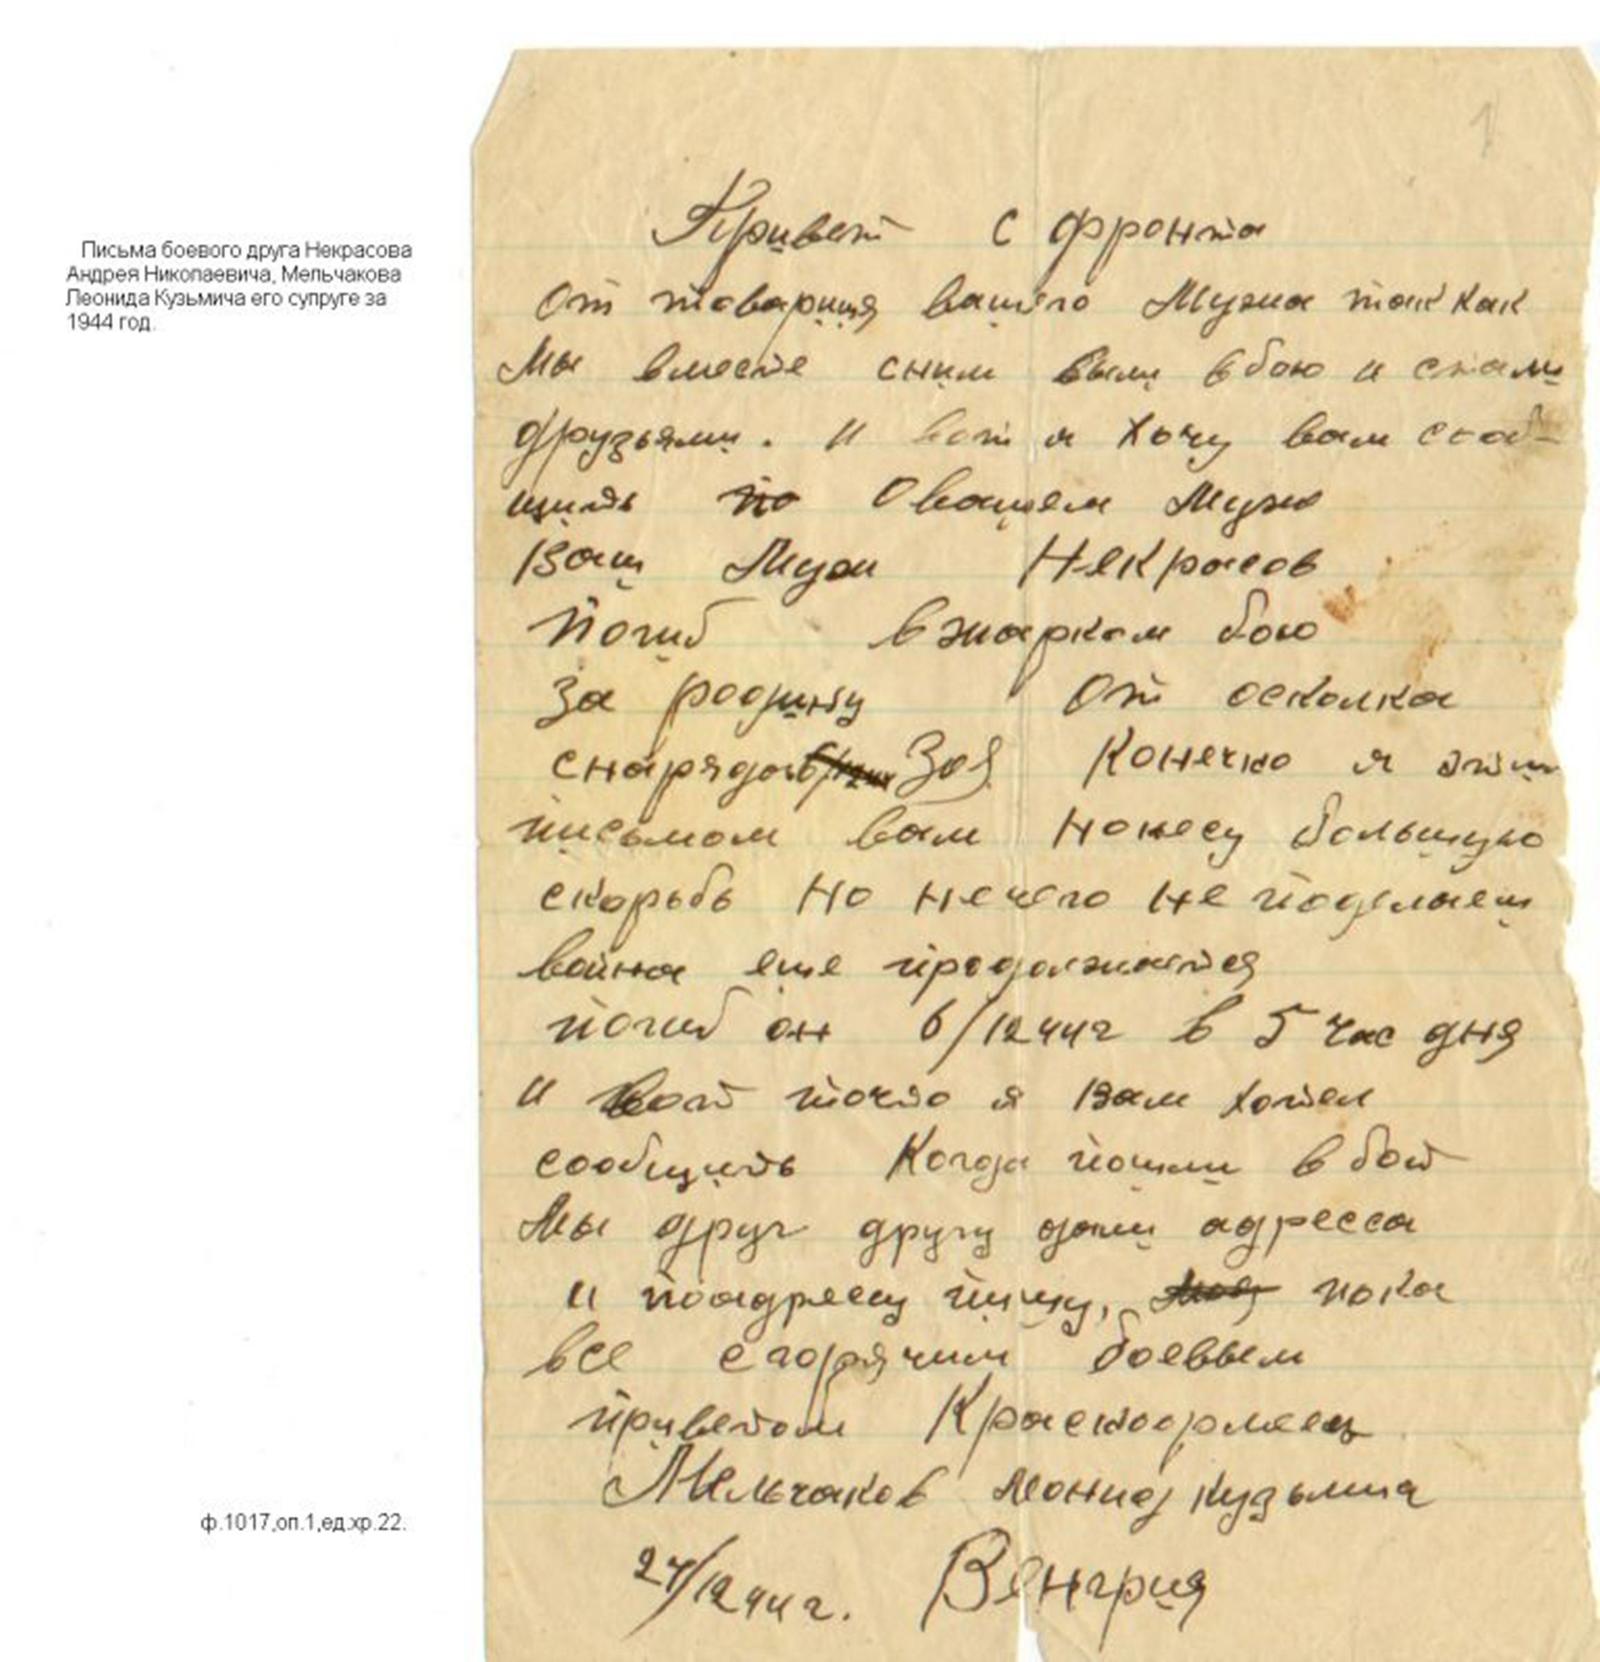 Письма боевого друга Некрасова
Андрея Николаевича, Мельчакова
Леонида Кузьмича его супруге за
1944 год.
1
Привет с фронта
От товарища вашего Мужа так как
Мы вместе сним были вбою и стали
друзьями. и вот я хочу вам сооб-
щить по О вашем Муже
Ваш Муж Некрасов
Погиб вжарком бою
За родину От осколка
снаряда Зоя Конечно я этим
письмом вам нонесу большую
скорбь но нечего не поделаеш
война еще продолжается
погиб он 6/12 44 г в 5 час дня
и вот точто я Вам хотел
сообщить Когда пошли в бой
Мы друг другу дали адресса
и поадресу пишу, пока
все сгорячим боевым
приветом Красноармеец
Мельчаков Леонид Кузьмича
24/12 44 г. Венгрия
ф.1017,оп.1,ед.хр.22.